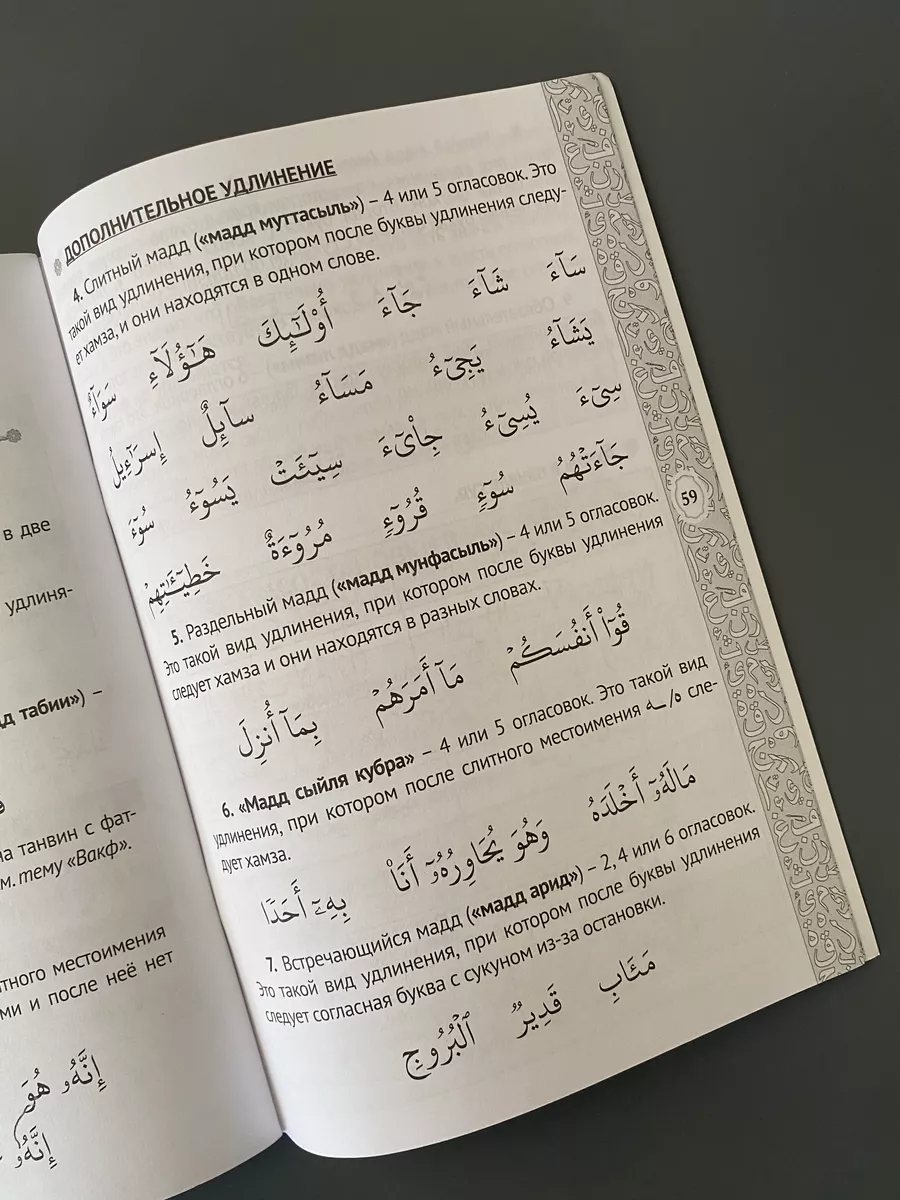 ДОПОЛНИТЕЛЬНОЕ УДЛИНЕНИЕ
4. Слитный мадд («мадд муттасыль») – 4 или 5 огласовок. Это
такой вид удлинения, при котором после буквы удлинения следу-
ет хамза, и они находятся в одном слове.
سَآءَ شَآءَ جَآءَ أُوْلَـٰٓئِكَ هَـٰٓؤُلَآءِ سَوَآءٌ
يَشَآءُ يَجِىٓءُ مَسَآءُ سَآئِلٌ إِسْرَٰٓءِيلُ
سِىٓءَ يُسِىٓءُ جِاْىٓءَ سِيٓـَٔتْ يَسُوٓءُ سُوٓءَ
جَآءَتْهُمُ سُوٓءٍ قُرُوٓءٍ مُرُوٓءَةٌ خَطِيٓـَٔـٰتِهِمْ
5. Раздельный мадд («мадд мунфасыль») – 4 или 5 огласовок.
Это такой вид удлинения, при котором после буквы удлинения
следует хамза и они находятся в разных словах.
قُوٓاْ أَنفُسَكُمْ مَآ أَمَرَهُمْ بِمَآ أُنزِلَ
6. «Мадд сыйля кубра» – 4 или 5 огласовок. Это такой вид
удлинения, при котором после слитного местоимения ه/ـه сле-
дует хамза.
مَالَهُۥٓ أَخْلَدَهُ وَهُوَ يُحَاوِرُهُۥٓ أَنَا۠ بِهِۦٓ أَحَدَا
7. Встречающийся мадд («мадд арид») – 2, 4 или 6 огласовок.
Это такой вид удлинения, при котором после буквы удлинения
следует согласная буква с сукуном из-за остановки.
مَـَٔابِ قَدِيرٌ ٱلْبُرُوجِ
59
в две
удлиня-
д табии») –
на танвин с фат-
м. тему «Вакф».
тного местоимения
ми и после неё нет
إِنَّهُۥ هُوَ
إِنَّهُۥ